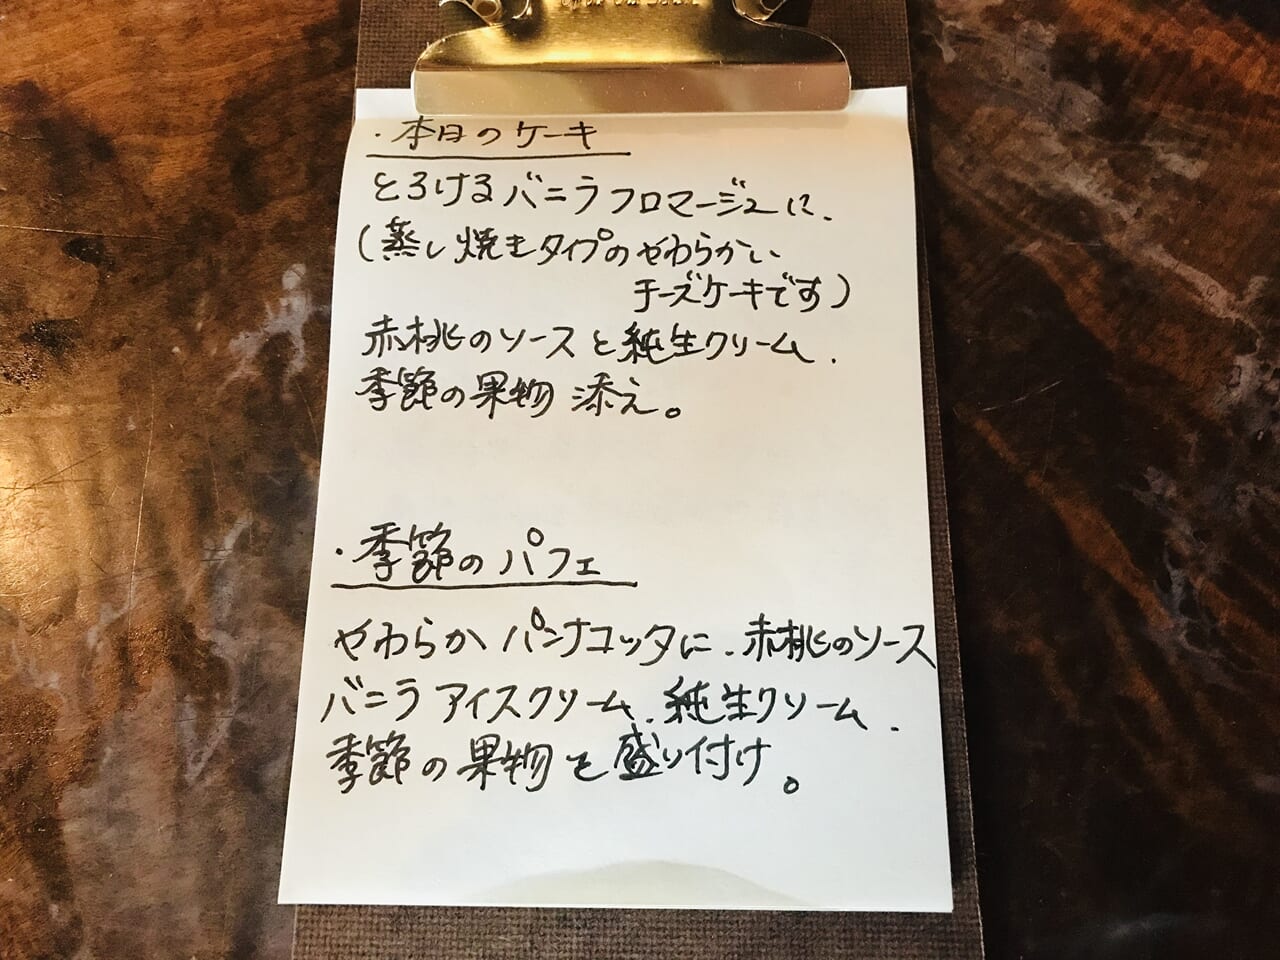 ・本日のケーキ
とろけるバニラフロマージュに、
(蒸し焼きタイプのやわらかい
チーズケーキです)
赤桃のソースと純生クリーム、
季節の果物 添え。
・季節のパフェ
やわらかパンナコッタに、赤桃のソース
バニラアイスクリーム、純生クリーム、
季節の果物を盛り付け。